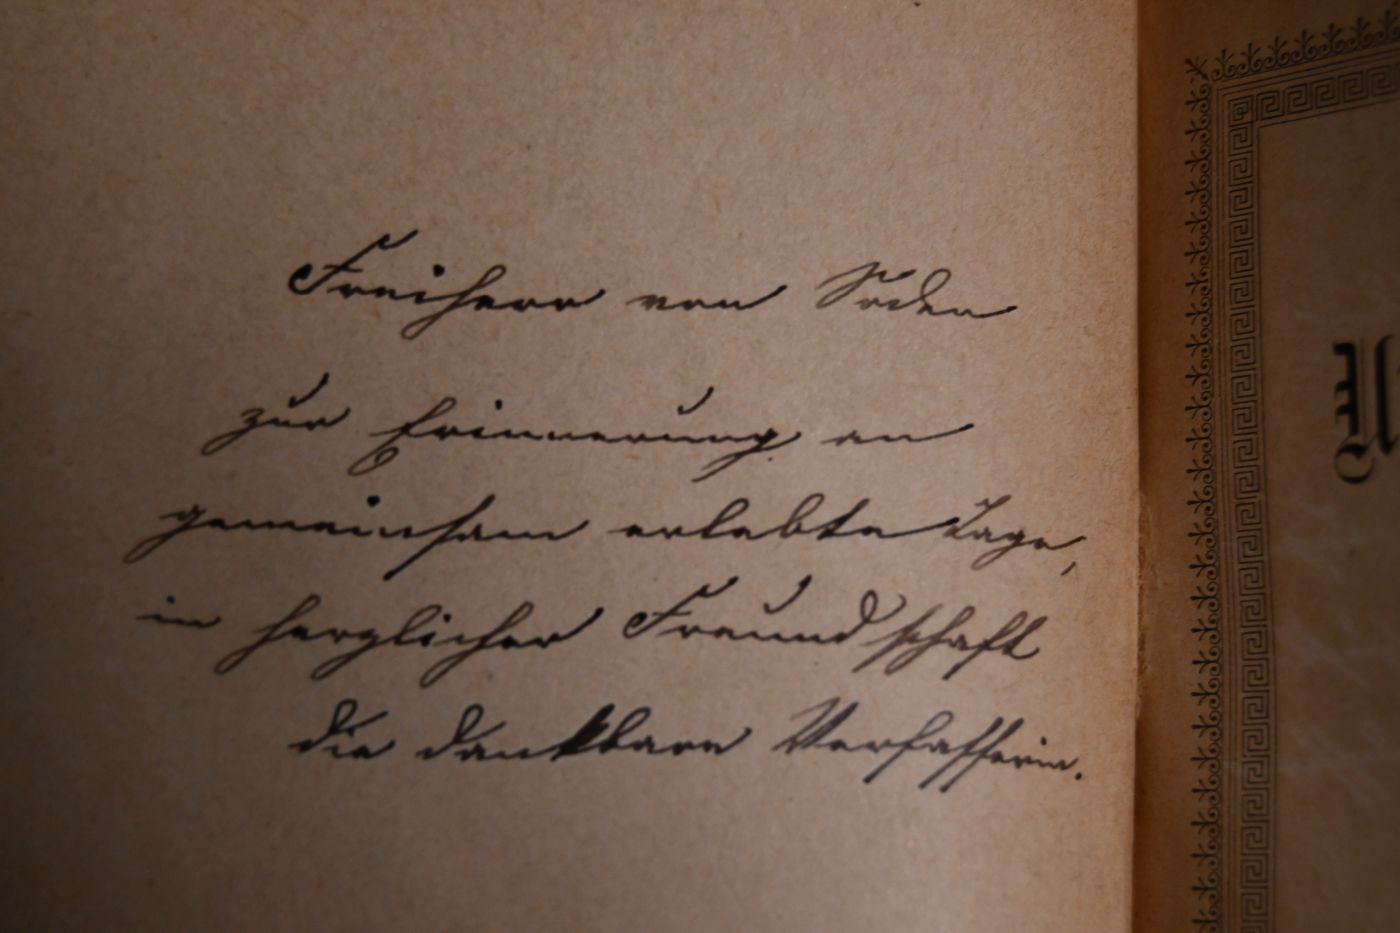 Freiherr von Soden
zur Erinnerung an
gemeinsam erlebte Tage,
in herzlicher Freundschaft
die dankbare Verfasserin.